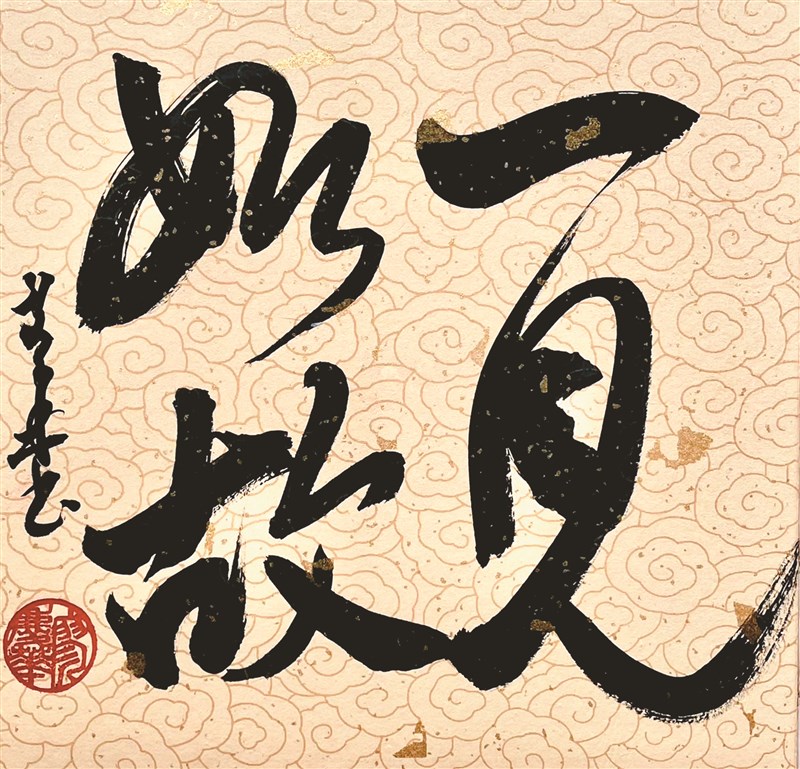 一見
如故